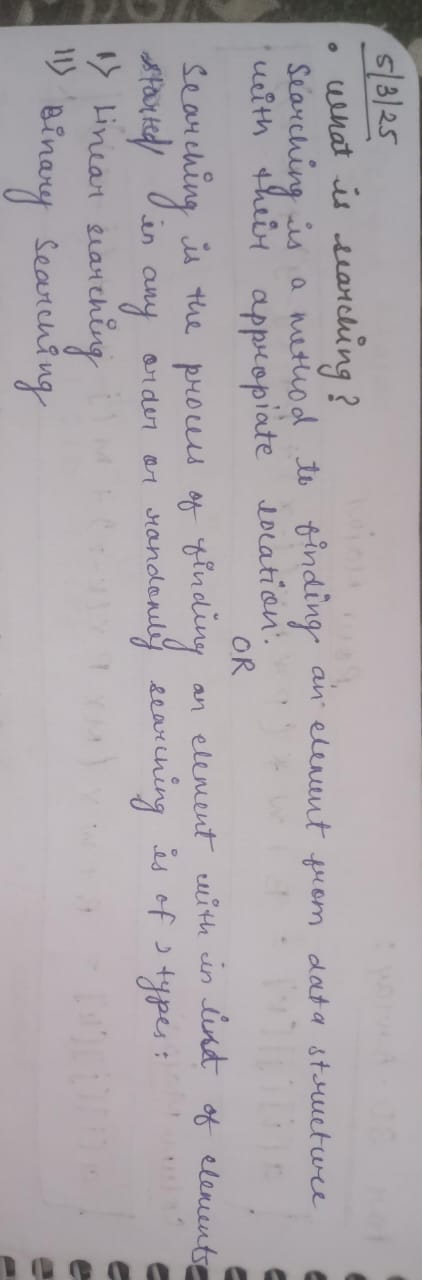 5/3/25
• What is searching?
Searching is a method to finding an element from data structure
with their appropiate location.
OR
Searching is the process of finding an element with in list of elements
started in any order or randomly searching is of 2 types:
I) Linear searching
II) Binary Searching